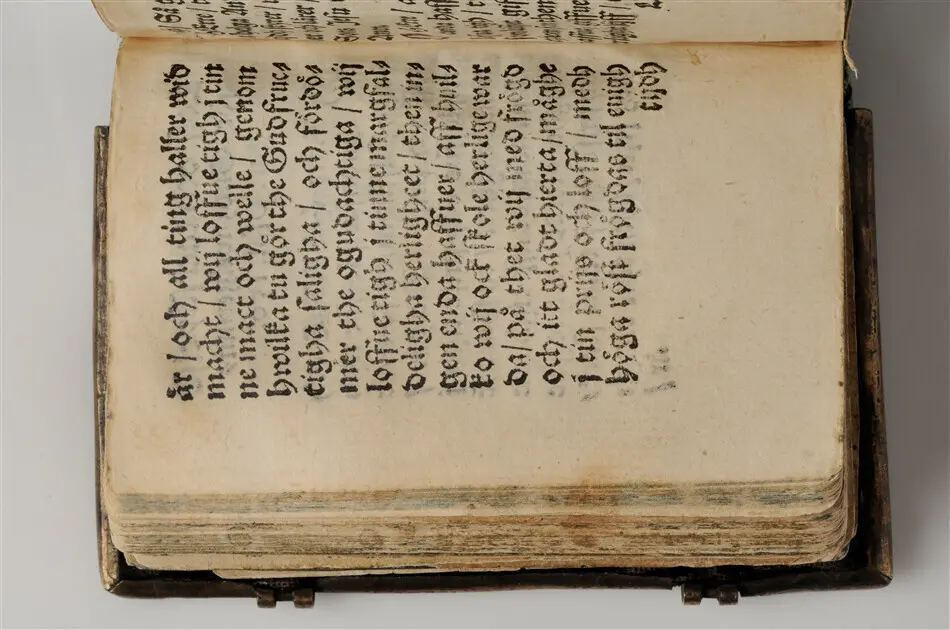 är / och all ting håller wid
macht / wij loffue tigh j tin
ne mact och welle / genom
hwilka tu gör the Gudfruc⸗
tigha saligha / och fördö⸗
mer the ogudachtiga / wij
loffue tigh j tinne margfal⸗
deligha herligheet / then in⸗
gen enda haffuer / aff huil⸗
ko wij ock skole herlige war
da / på thet wij med frögd
och itt gladt hierta / måghe
j tin prijs och loff / medh
höga röst frögdas til ewigh
tijdh